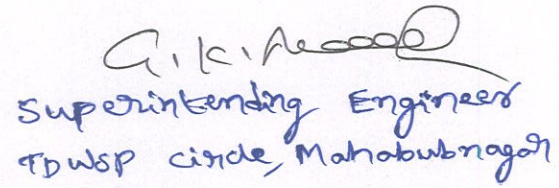 G.K.
Superintending Engineer
TDWSP circle, Mahabubnagar